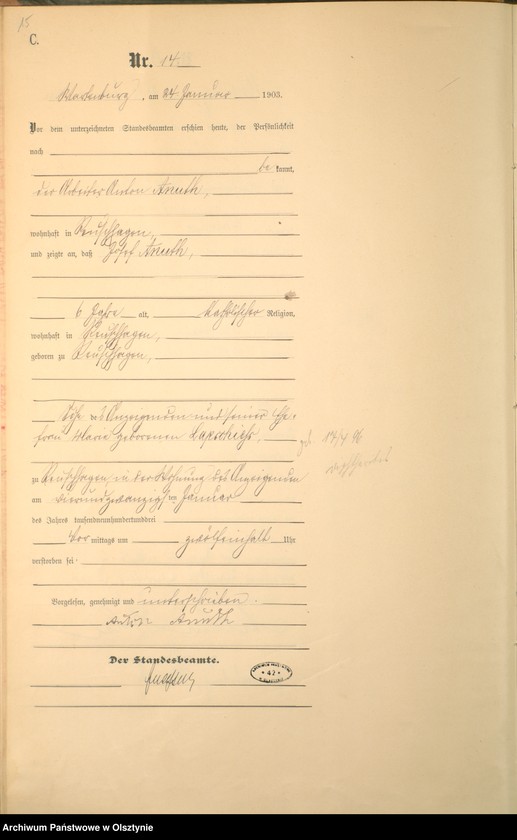 15
C.
Nr. 14
Wartenburg, am 24 Januar 1903.
Vor dem unterzeichneten Standesbeamten erschien heute, der Persönlichkeit
nach
be kannt,
der Arbeiter Anton Anuth,
wohnhaft in Reuschhagen,
und zeigte an, daß Josef Anuth,
6 Jahre alt, katholischer Religion,
wohnhaft in Reuschhagen,
geboren zu Reuschhagen,
Sohn des Anzeigenden und seiner Ehe-
frau Marie geborenen
zu Reuschhagen, in der Wohnung des Anzeigenden
am vierundzwanzigsten Januar
des Jahres tausendneunhundertunddrei
Vor mittags um zwölfeinhalb Uhr
verstorben sei.
Vorgelesen, genehmigt und unterschrieben.
Anton Anuth
Der Standesbeamte.
47
Archiwum Państwowe w Olsztynie